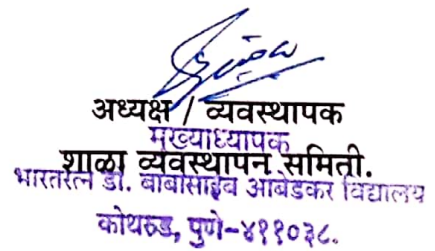 अध्यक्ष / व्यवस्थापक
मुख्याध्यापक
शाळा व्यवस्थापन समिती.
भारतरत्न डॉ. बाबासाहेब आंबेडकर विद्यालय
कोथरुड, पुणे-४११०३८.